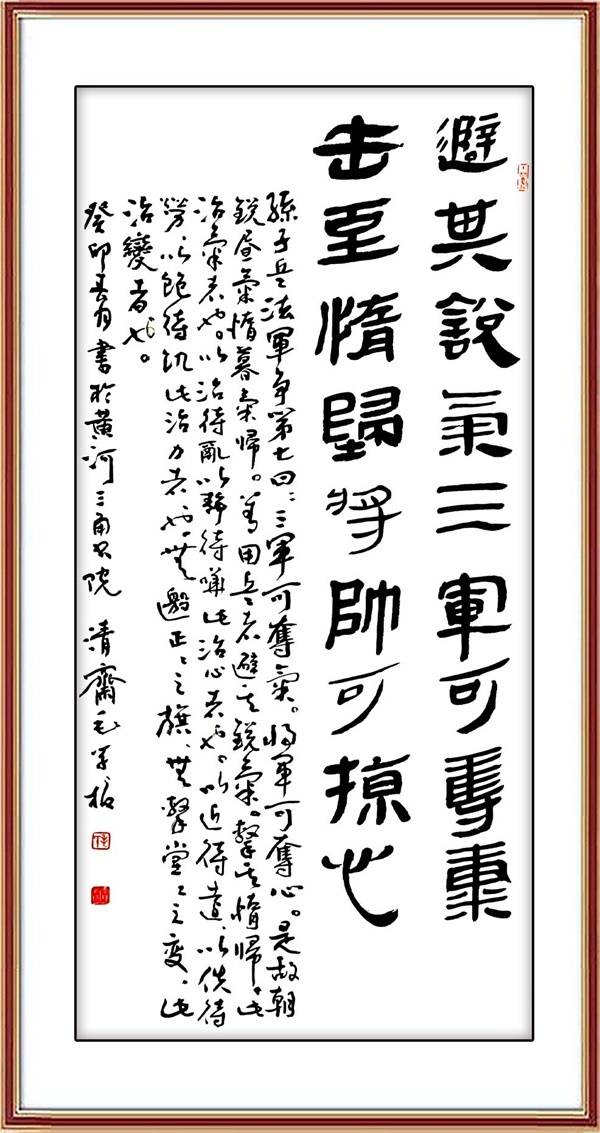 避其說氣三軍可
击至惰歸将帥可掠也
孫子兵法軍争第七曰：三軍可奪氣。将軍可奪心。是故朝
銳昼氣惰暮氣帰。善用兵者避其銳氣。擊其惰帰。此
治氣者也。以治待亂以静待嘩此治心者也。以近待遠、以佚待
勞、以飽待饥此治力者也。無邀正々之旗、無擊堂々之变、此
治變者也。
癸卯春月書於黄河三角书院 清齋毛学